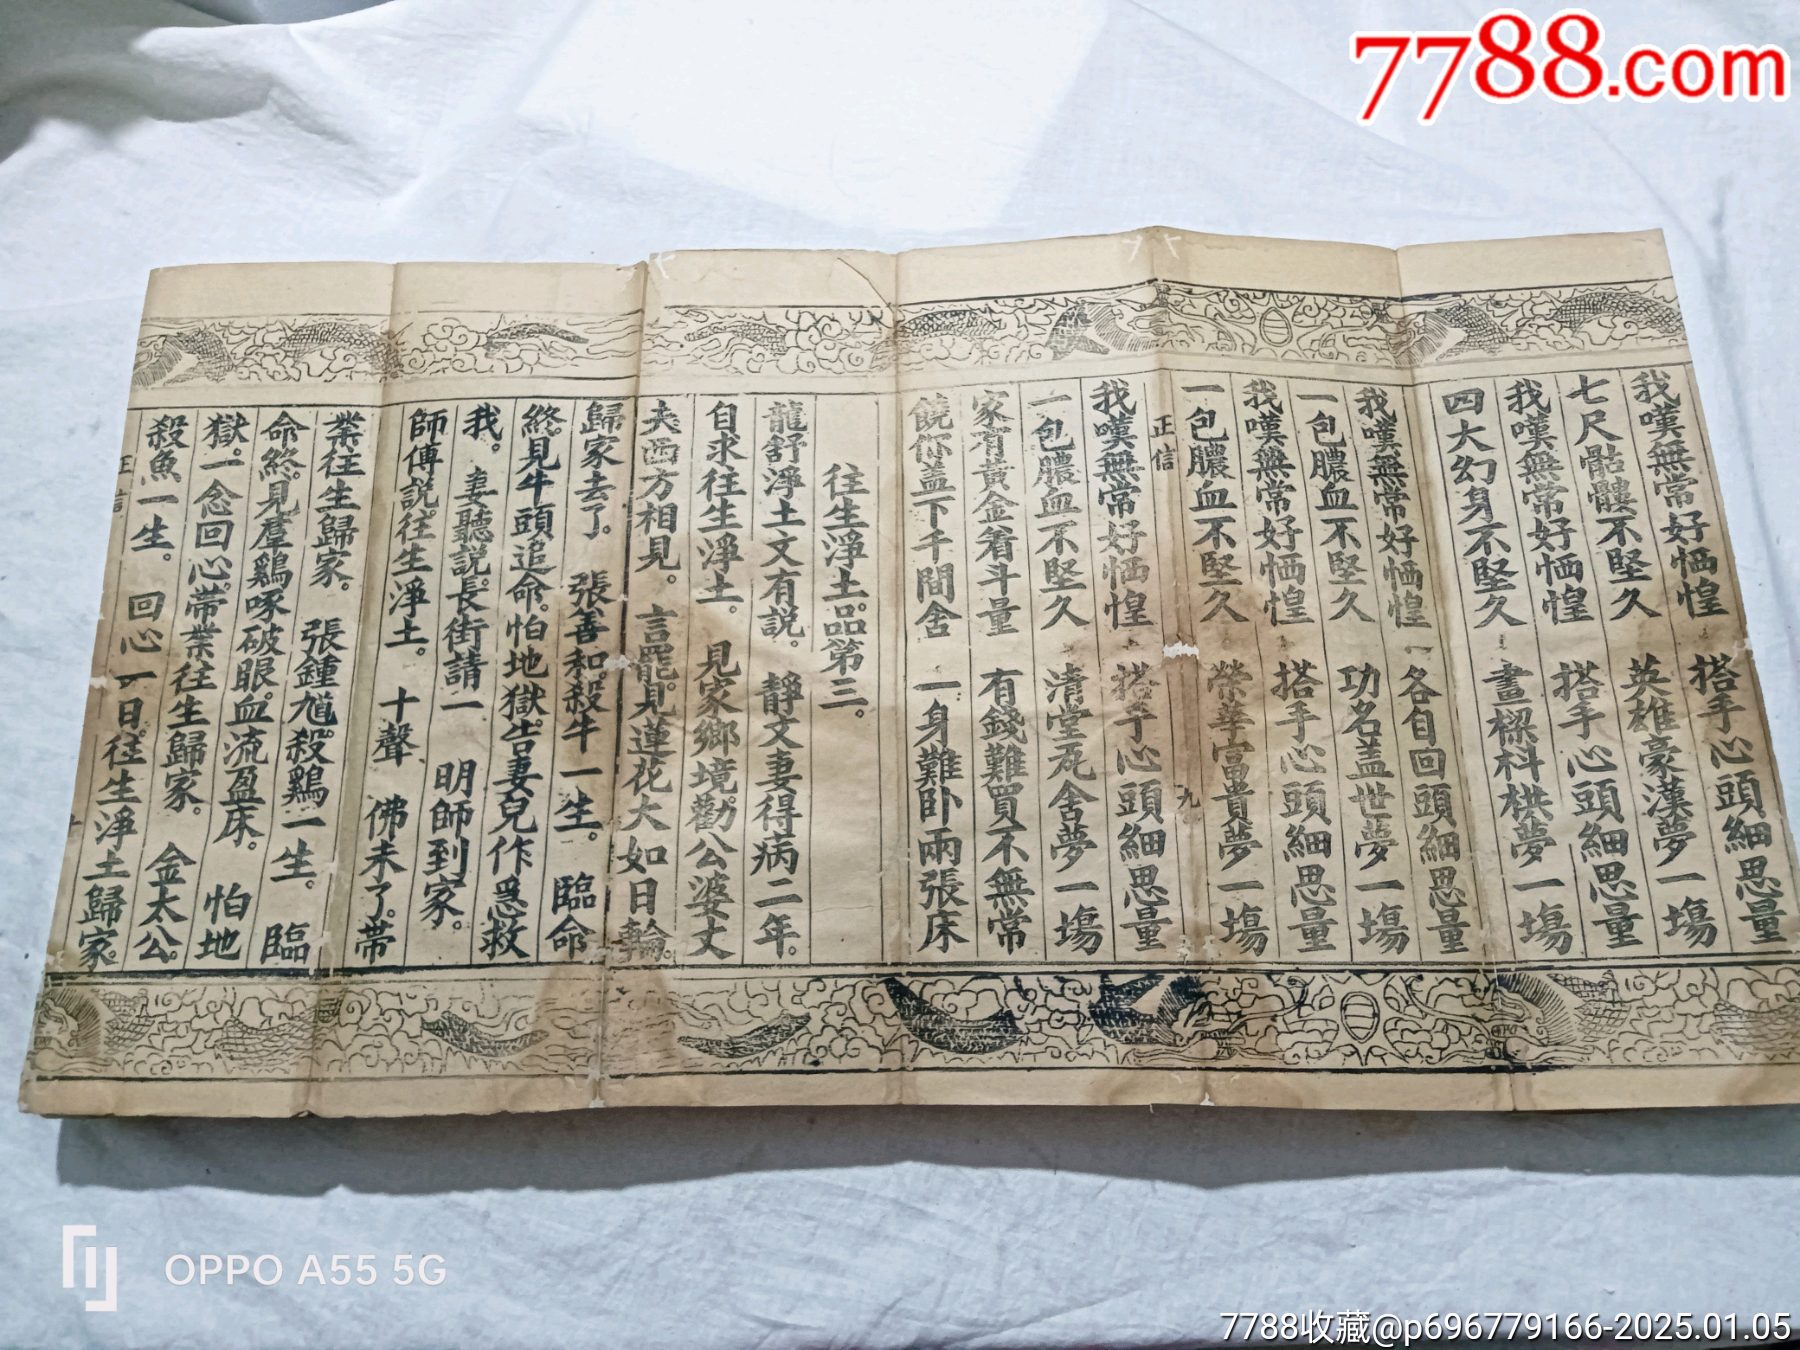 7788.com
我嘆無常好恓惶 搭手心頭細思量
七尺骷髏不堅久 英雄豪漢夢一場
我嘆無常好恓惶 搭手心頭細思量
四大幻身不堅久 畫樑枓栱夢一場
我嘆無常好恓惶 各自回頭細思量
一包膿血不堅久 功名盖世夢一場
我嘆無常好恓惶 搭手心頭細思量
一包膿血不堅久 榮華富貴夢一場
正信 九
我嘆無常好恓惶 搭手心頭細思量
一包膿血不堅久 清堂瓦舍夢一場
家有黃金着斗量 有錢難買不無常
饒你盖下千間舍 一身難卧兩張床
往生淨土品第三。
龍舒淨土文有説。靜文妻得病二年。
自求往生淨土。見家鄉境。勸公婆丈
夫西方相見。言罷。見蓮花大如日輪。
歸家去了。張善和。殺牛一生。臨命
終見牛頭追命。怕地獄。告妻兒作急救
我。妻聽説。長街請一 明師到家。
師傅説。往生淨土。十聲 佛未了。帶
業往生歸家。張鍾馗。殺鷄一生。臨
命終。見羣鷄啄破眼。血流盈床。怕地
獄。一念回心。帶業往生歸家。金太公。
殺魚一生。回心一日。往生淨土歸家。
正信 十
OPPO A55 5G
7788收藏@p696779166-2025.01.05